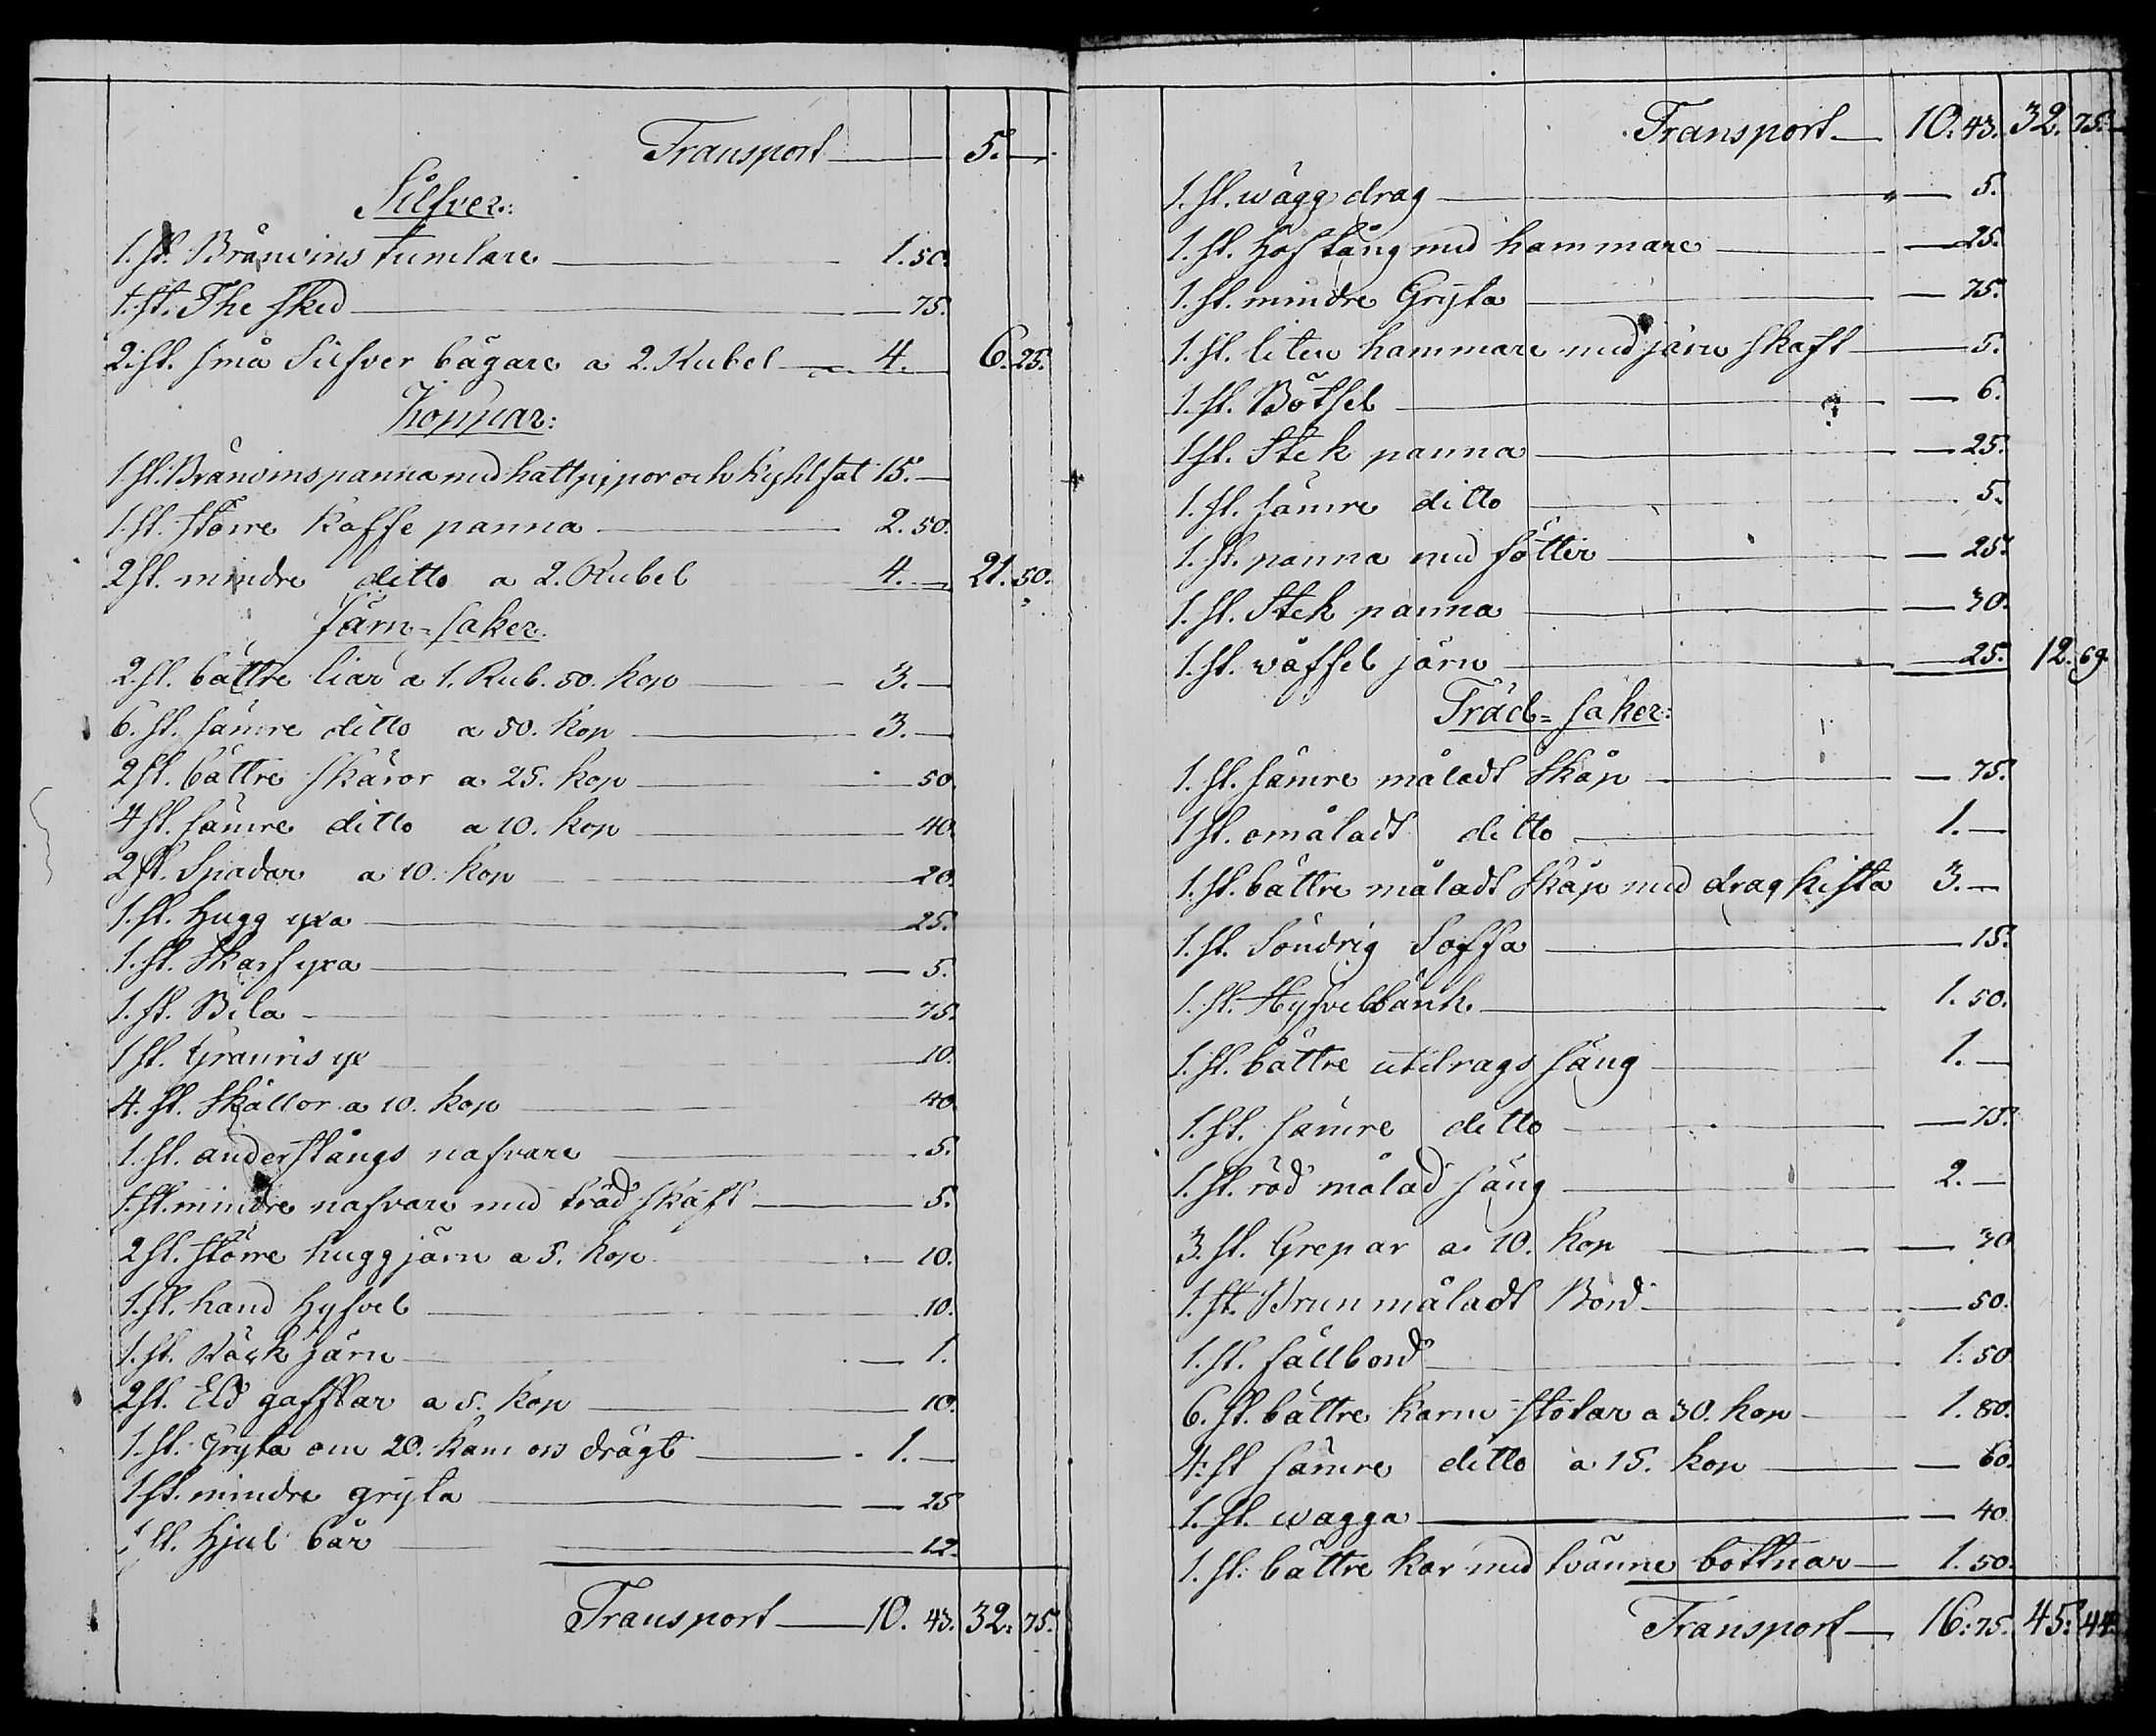 Transport — 5. —
Silfver:
1. st. Brånvins tumlare — 1. 50.
1. st. The sked — 75.
2. st. små Silfver bägare a 2. Rubel — 4. — 6. 25.
Koppar:
1 st. Brånvins panna med hatt pipor och kyhlfat 15. —
1. st. större Kaffe panna — 2. 50.
2 st. mindre ditto a 2. Rubel 4. — 21. 50.
Järn=saker.
2. st. bättre liar a 1. Rub. 50. kop — 3. —
6. st. sämre ditto a 50. kop — 3. —
2 st. bättre skäror a 25. kop — 50.
4 st. sämre ditto a 10. kop — 40.
2 st. Spadar a 10. kop — 20.
1. st. Hugg yxa — 25.
1. st. Skarf yxa — 5.
1. st. Bila — 75.
1 st. Granris yx — 10.
4. st. Skällor a 10. kop — 40.
1. st. anderstångs nafvare — 5.
1. st. mindre nafvare med träd skaft — 5.
2 st. större huggjärn a 5. kop — 10.
1. st. hand Hyfvel — 10.
1. st. järn — 1.
2 st. Eld gafflar a 5. kop — 10.
1. st. Gryta om 20. kanors drägt — 1. —
1 st. mindre gryta — 25
1 st. Hjul bår — 12.
Transport — 10. 43. 32. 75.
Transport — 10. 43. 32. 75. —
1. st. wägg drag — 5.
1. st. Hof tång med hammare — 25.
1. st. mindre Gryta — 75.
1. st. liten hammare med järn skaft — 5.
1. st. Bötsel — 6.
1 st. Stek panna — 25.
1. st. sämre ditto — 5.
1. st. panna med fötter — 25.
1. st. Stek panna — 30.
1. st. wåffel järn — 25. 12. 69.
Träd=saker:
1. st. sämre måladt Skåp — 75.
1 st. omåladt ditto — 1. —
1. st. bättre måladt Skåp med dragkista 3. —
1. st. Söndrig Soffa — 15.
1. st. Hyfvelbänk — 1. 50.
1. st. bättre utdrags säng — 1. —
1. st. sämre ditto — 75.
1. st. röd målad säng — 2. —
3. st. Grepar a 10. kop — 30
1. st. Brun måladt Bord — 50.
1. st. fällbord — 1. 50
6. st. bättre karm stolar a 30. kop — 1. 80.
4. st sämre ditto a 15. kop — 60.
1. st. wagga — 40
1. st. bättre kar med tvänne bottnar — 1. 50.
Transport — 16. 75. 45. 44.